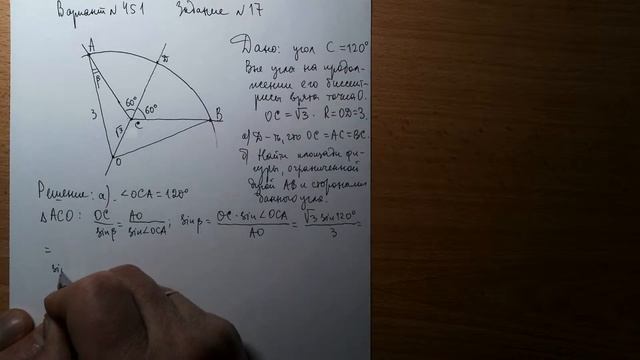 Вариант №451 Задание №17
Дано: угол C=120°
Вне угла на продол-
жении его биссект-
рисы взята точка O.
OC=√3. R=OD=3.
а) Д-ть, что OC=AC=BC.
б) Найти площадь фи-
гуры, ограниченной
дугой AB и сторонами
данного угла.
A
D
β
60°
60°
3
C
B
√3
O
Решение: а). ∠OCA=120°
ΔACO: OC/sinβ = AO/sin∠OCA; sinβ = OC·sin∠OCA/AO = √3 sin120°/3 =
=
si